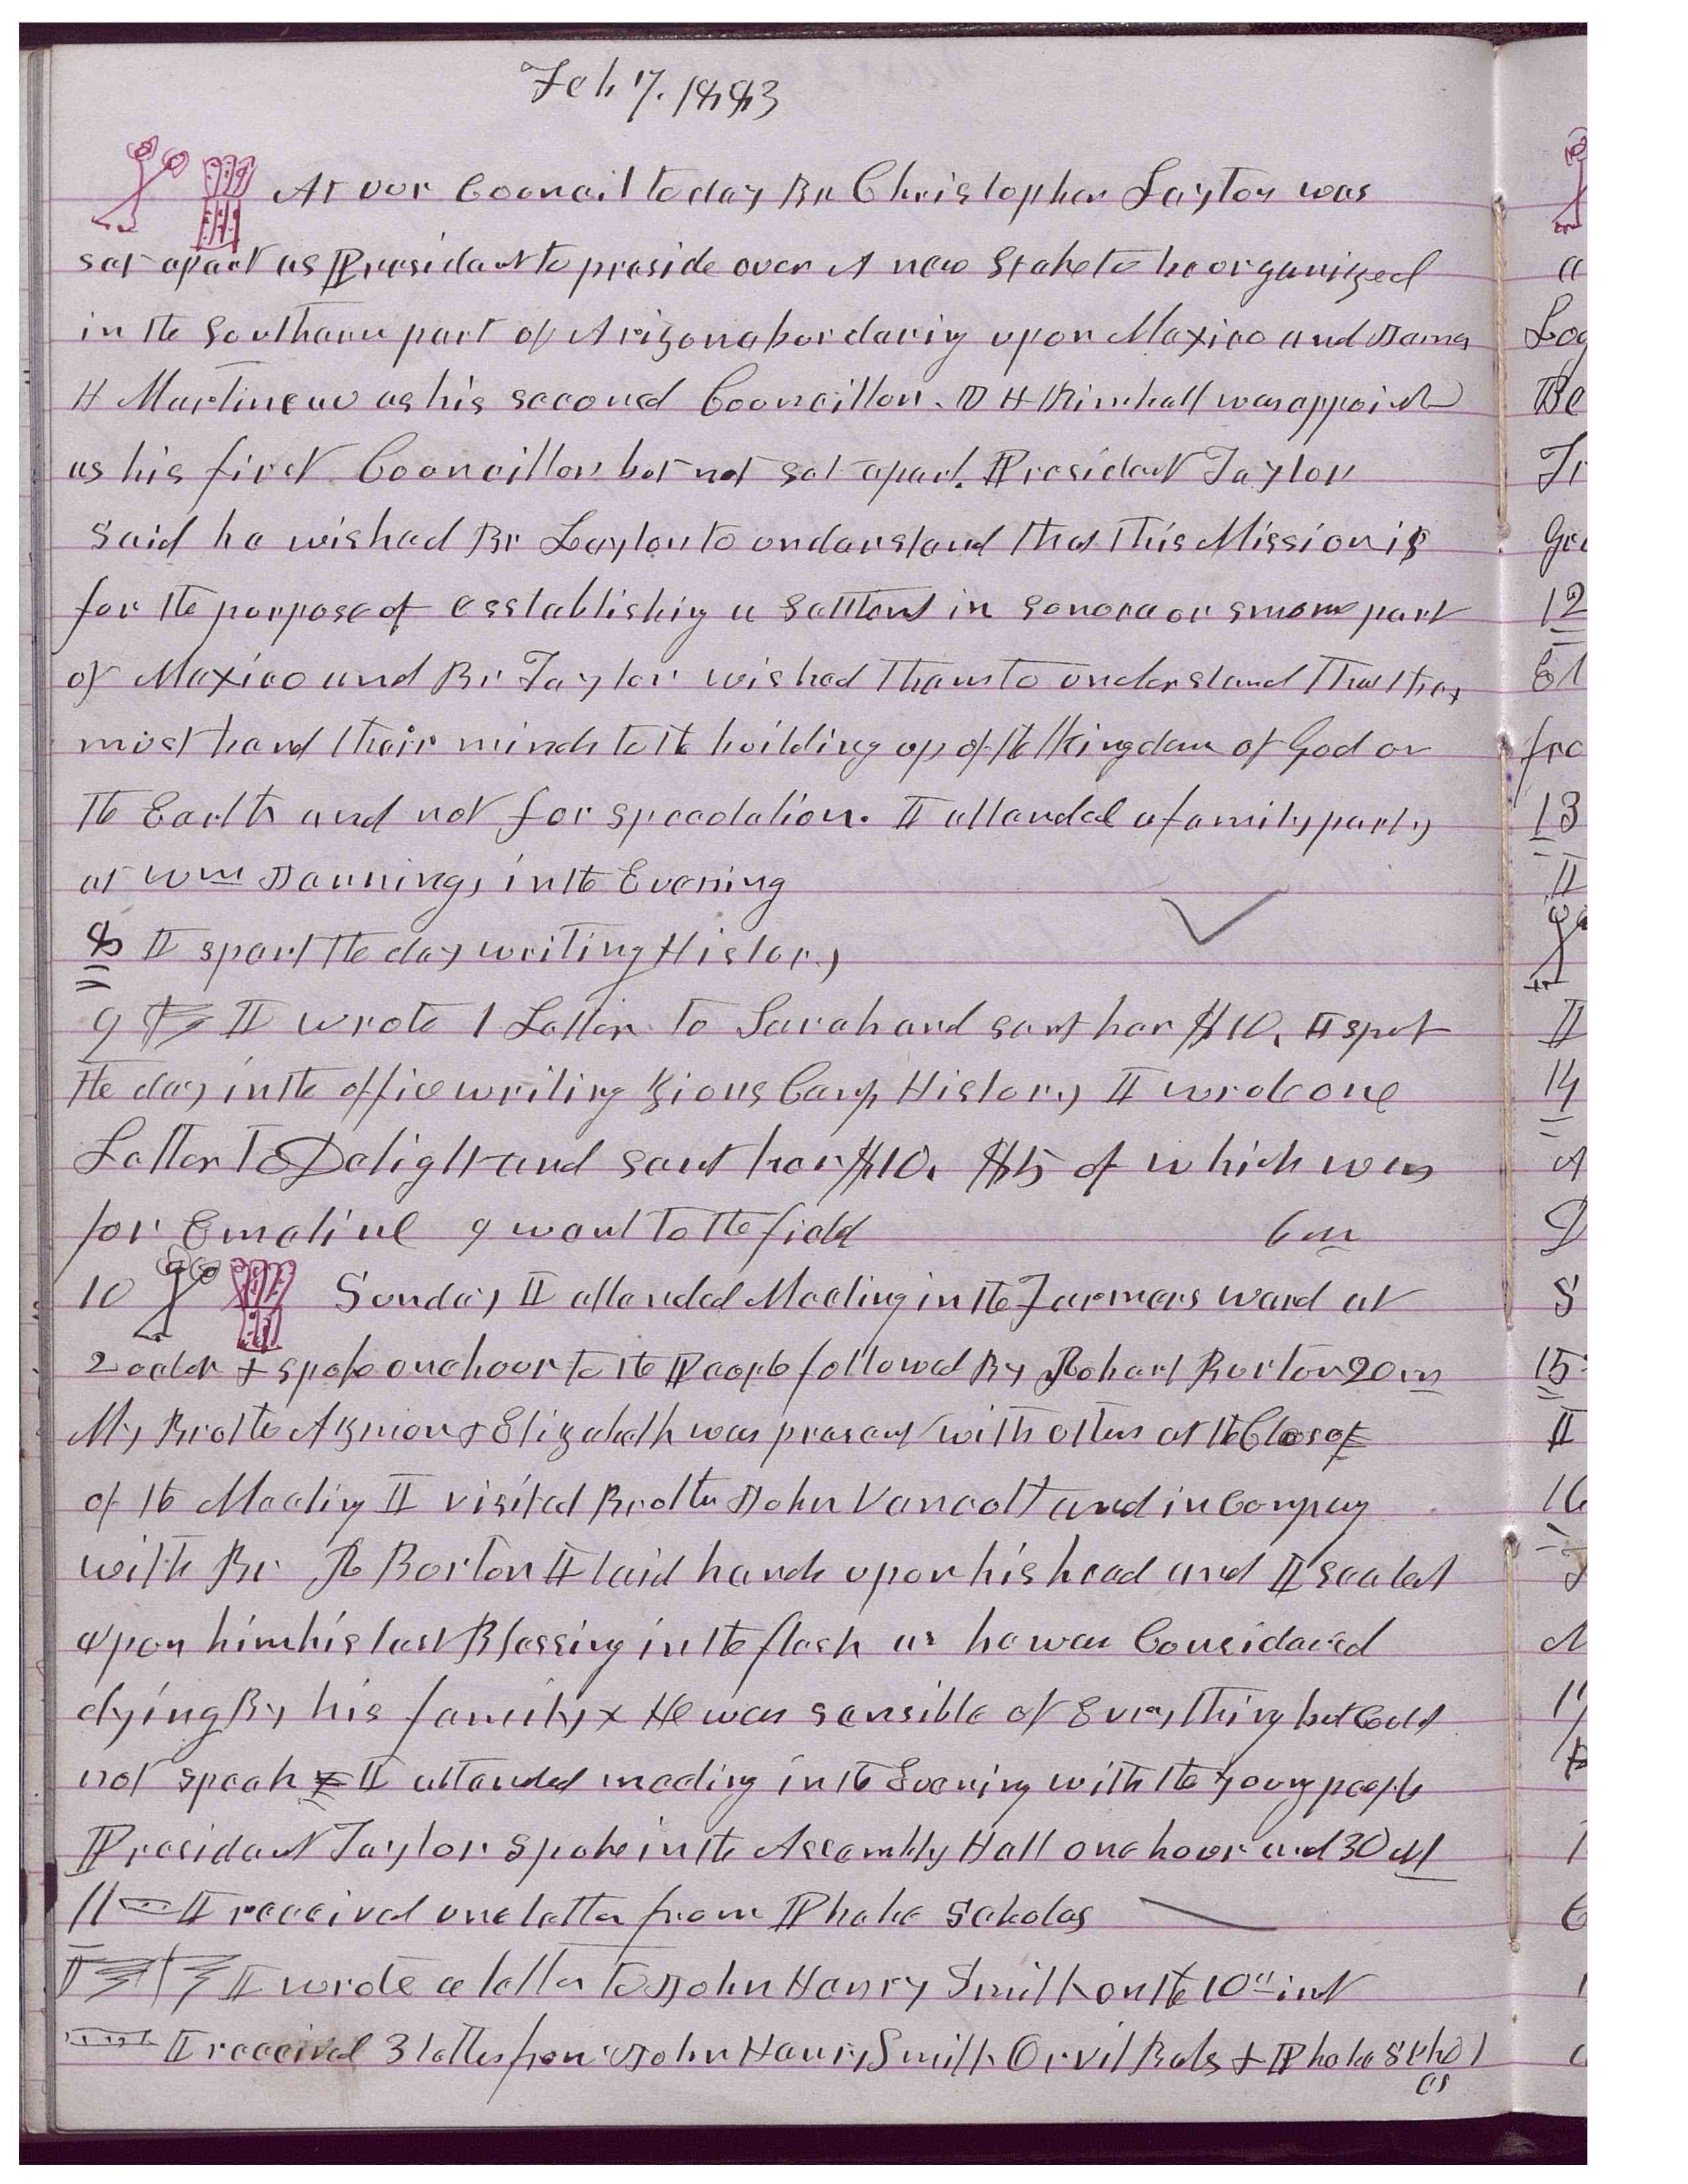 Feb 7. 1883
At our Councail to day Br Christopher Layton was
set apart as President to preside over A new Stake to be organized
in the Southern part of Arizona bordering upon Mexico and James
H Martineau as his second Councillor. D H Kimball was appointed
as his first Councillor but not set apart. President Taylor
Said he wished Br Layton to understand that this Mission is
for the purpose of esstablishing a settlemt in sonora or some part
of Mexico and Br Taylor wished them to understand that they
must have their minds to the building up of the Kingdom of God on
the Earth and not for specculation. I attended a family party
at Wm Jennings in the Evening
8 I spent the day writing History
9 I wrote 1 Letter to Sarah and sent her $10. I spet
the day in the office writing Zions Camp History I wrote one
Letter To Delight and sent her $10. $5 of which was
for Emeline I went To the field 6 m
10 Sunday I attended Meeting in the Farmers ward at
2 oclok + spoke one hour to the People followed By Robert Burton 20 m
My Brother Azmon + Elizabeth was present with others at the Close of
of the Meeting I visited Brother John Vancott and in Company
with Br R Borton I laid hands upon his head and I sealed
upon him his last Blessing in the flesh as he was Considered
dying By his family + He was sensible of Every thing but Could
not speak + I attended meeting in the Evening with the young people
President Taylor Spoke in the Assembly Hall one hour and 30 M
11 I received one letter from Phebe Scholes
I wrote a letter To John Henry Smith on the 10" inst
I received 3 letters from John Henry Smith Orvil Bates + Phebe Schol
es
12
13
14
15
16